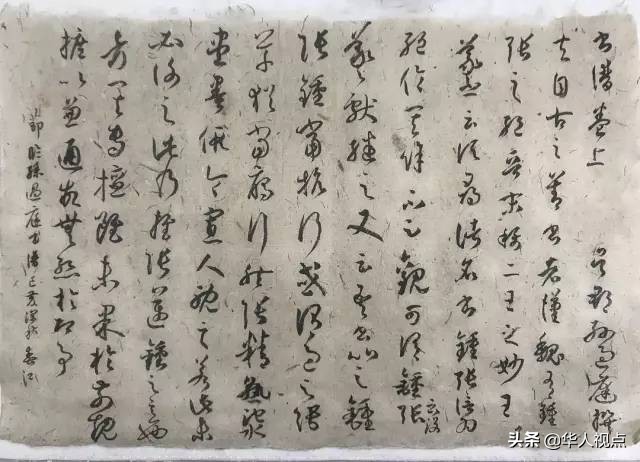 書譜卷上 吳郡孫過庭撰
夫自古之善書者漢魏有鍾
張之絕晉末稱二王之妙王
羲之云頃尋諸名書鍾張信為
絕倫其餘不足觀可謂鍾張云沒
而羲獻繼之又云吾書比之鍾
張鍾當抗行或謂過之張
草猶當雁行然張精熟池水
盡墨假令寡人耽之若此未
必謝之此乃推張邁鍾之意
考其專擅雖未果於前規
摭以兼通故無慚於即事
節臨孫過庭書譜己亥深秋
头条 @华人视点